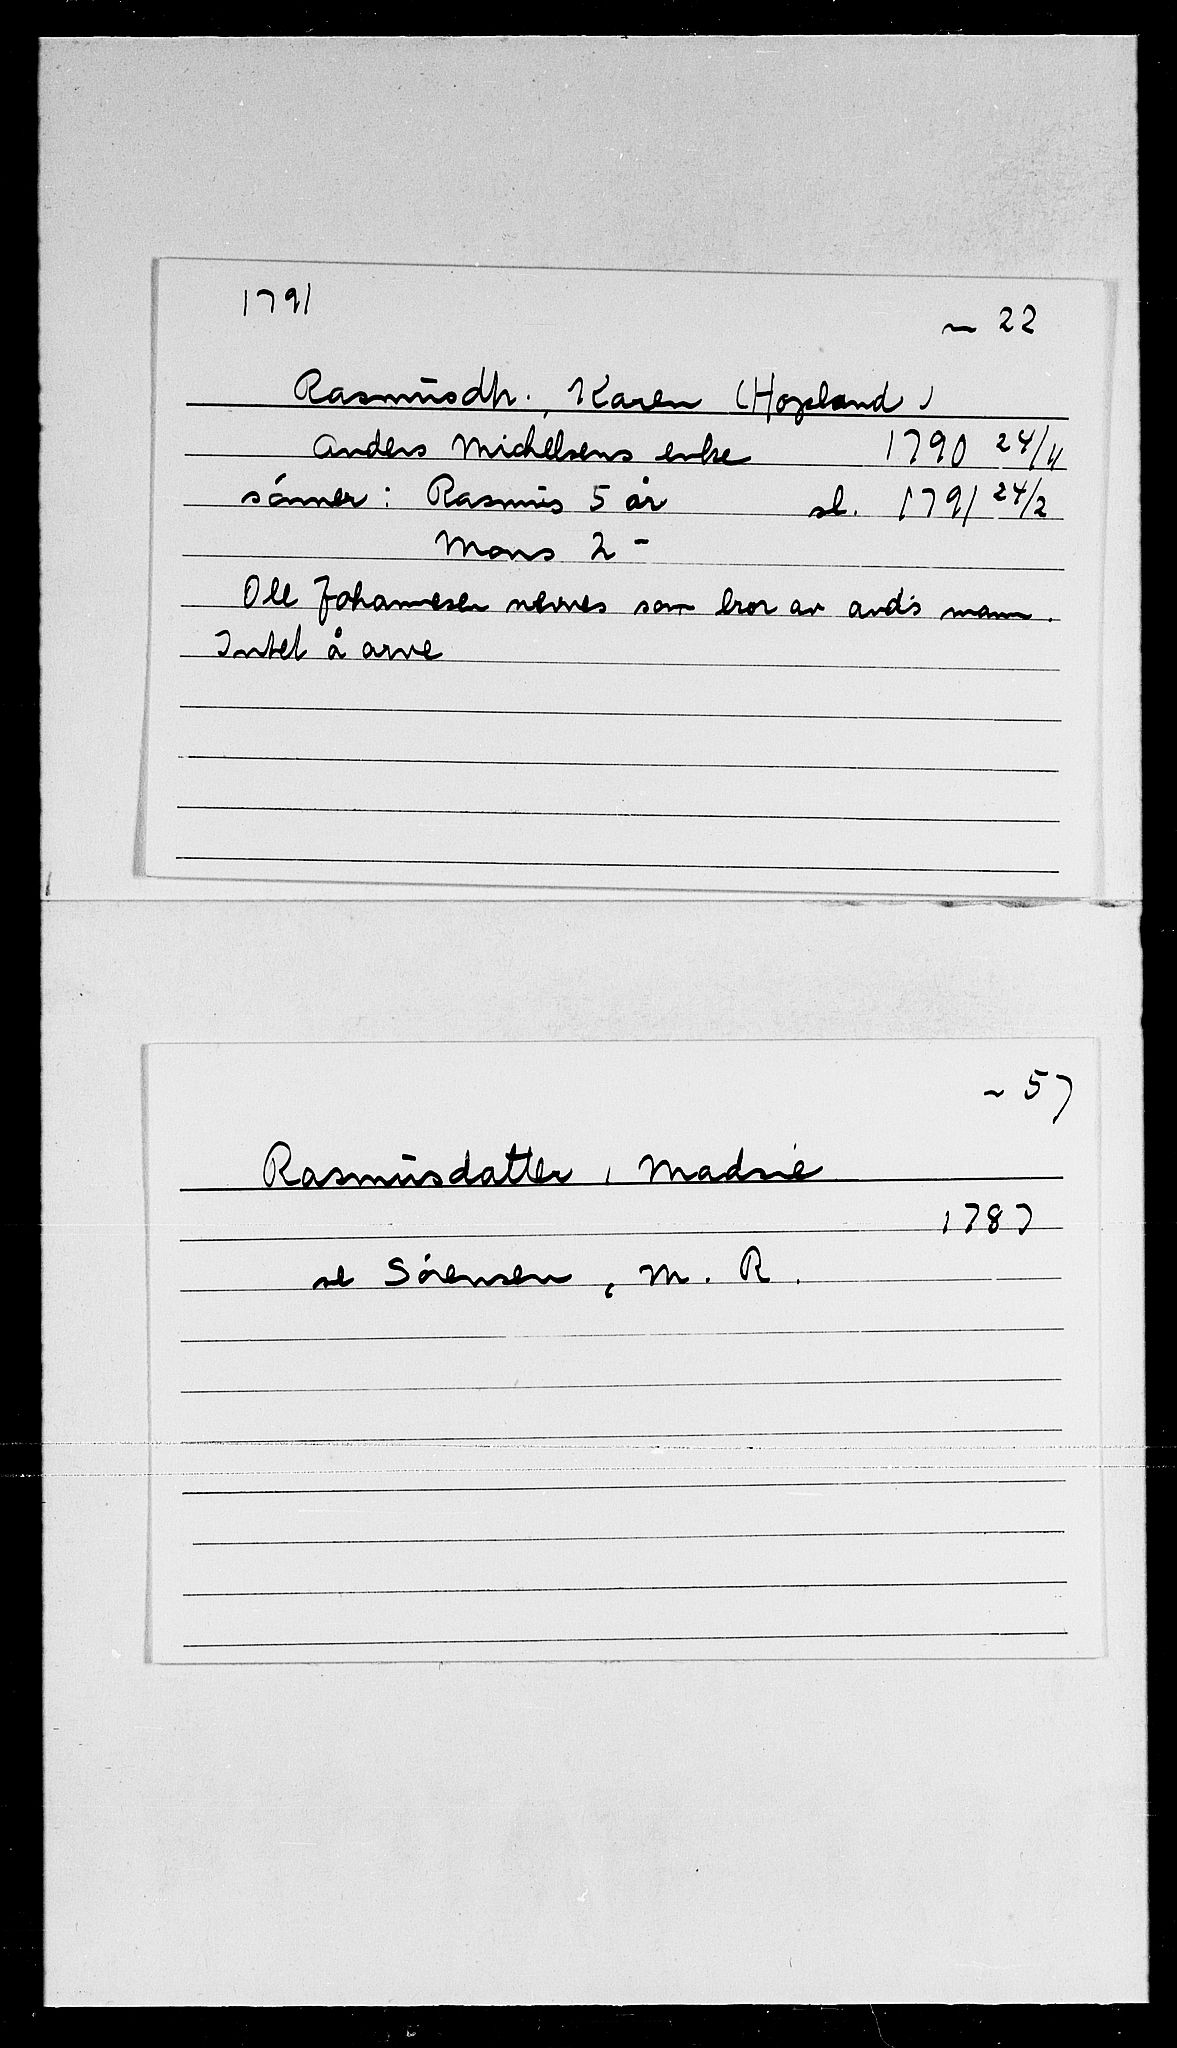 1791
~ 22
Rasmusdtr., Karen (Hopland)
Anders Michelsens enke 1790 24/11
sønner: Rasmus 5 år sl. 1791 24/2
Mons 2 -
Ole Johannesen nevnes som bror av avd's mann.
Intet å arve
~ 57
Rasmusdatter, Madsie
1787
se Sørensen, M. R.